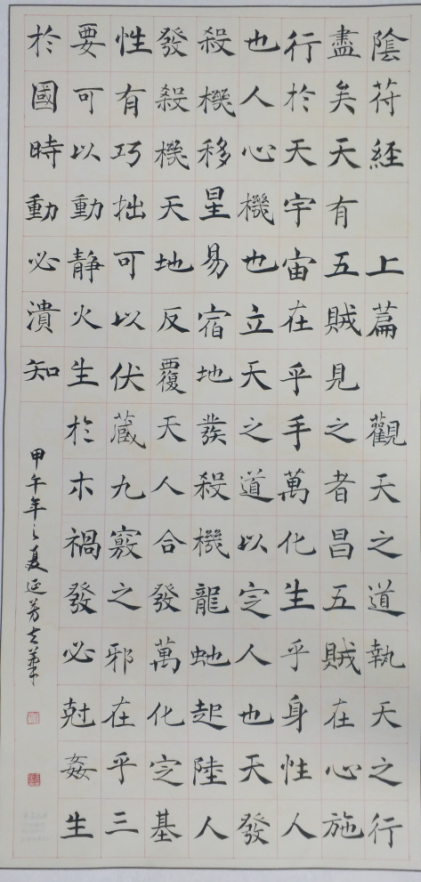 陰苻經 上篇 觀天之道執天之行
盡矣天有五賊見之者昌五賊在心施
行於天宇宙在乎手萬化生乎身性人
也人心機也立天之道以定人也天發
殺機移星易宿地發殺機龍虵起陸人
發殺機天地反覆天人合發萬化定基
性有巧拙可以伏藏九竅之邪在乎三
要可以動靜火生於木禍發必尅姦生
於國時動必潰知
甲午年之夏延芳